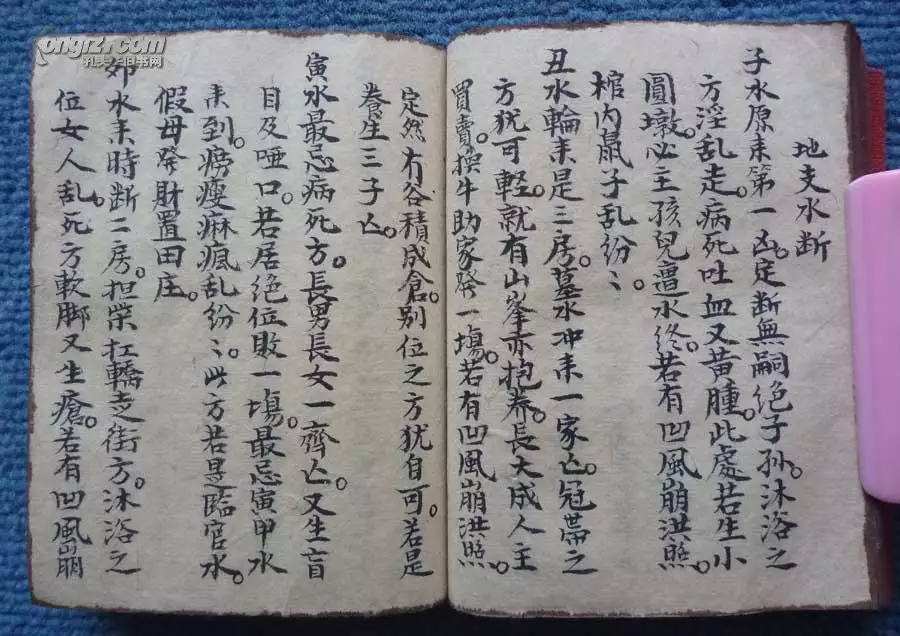 地支水断
子水原来第一凶。定断無嗣绝子孙。沐浴之
方淫乱走。病死吐血又黄腫。此處若生小
圓墩。必主孩兒遭水终。若有凹風崩洪照。
棺内鼠子乱纷〻。
丑水輪来是三房。墓水冲来一家亡。冠帶之
方犹可軽。就有山峯亦抱养。長大成人主
買賣。換牛助家発一場。若有凹風崩洪照。
定然冇谷積成倉。别位之方犹自可。若是
養生三子亡。
寅水最忌病死方。長男長女一齊亡。又生盲
目及啞口。若居绝位敗一場。最忌寅甲水
来到。痨瘦麻瘋乱纷〻。此方若是臨官水。
假母発財置田庄。
卯水来時断二房。担柴扛轎走街方。沐浴之
位女人乱。死方軟脚又生瘡。若有凹風崩
ongrz.com
孔夫子旧书网